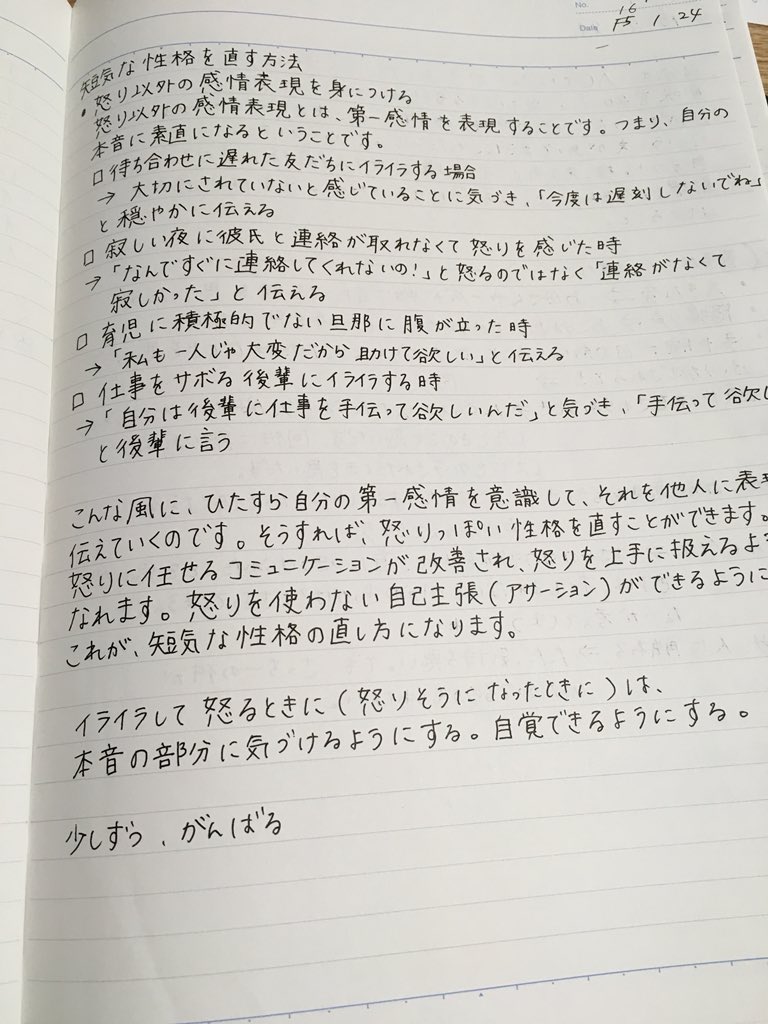 No.
16
Date 1 24
短気な性格を直す方法
・怒り以外の感情表現を身につける
怒り以外の感情表現とは、第一感情を表現することです。つまり、自分の
本音に素直になるということです。
□ 待ち合わせに遅れた友だちにイライラする場合
→ 大切にされていないと感じていることに気づき、「今度は遅刻しないでね」
と穏やかに伝える
□ 寂しい夜に彼氏と連絡が取れなくて怒りを感じた時
→「なんですぐに連絡してくれないの!」と怒るのではなく「連絡がなくて
寂しかった」と伝える
□ 育児に積極的でない旦那に腹が立った時
→「私も一人じゃ大変だから助けて欲しい」と伝える
□ 仕事をサボる後輩にイライラする時
→「自分は後輩に仕事を手伝って欲しいんだ」と気づき、「手伝って欲し
と後輩に言う
こんな風に、ひたすら自分の第一感情を意識して、それを他人に表現
伝えていくのです。そうすれば、怒りっぽい性格を直すことができます。
怒りに任せるコミュニケーションが改善され、怒りを上手に扱えるよ
なれます。怒りを使わない自己主張(アサーション)ができるように
これが、短気な性格の直し方になります。
イライラして怒るときに(怒りそうになったときに)は、
本音の部分に気づけるようにする。自覚できるようにする。
少しずつ、がんばる